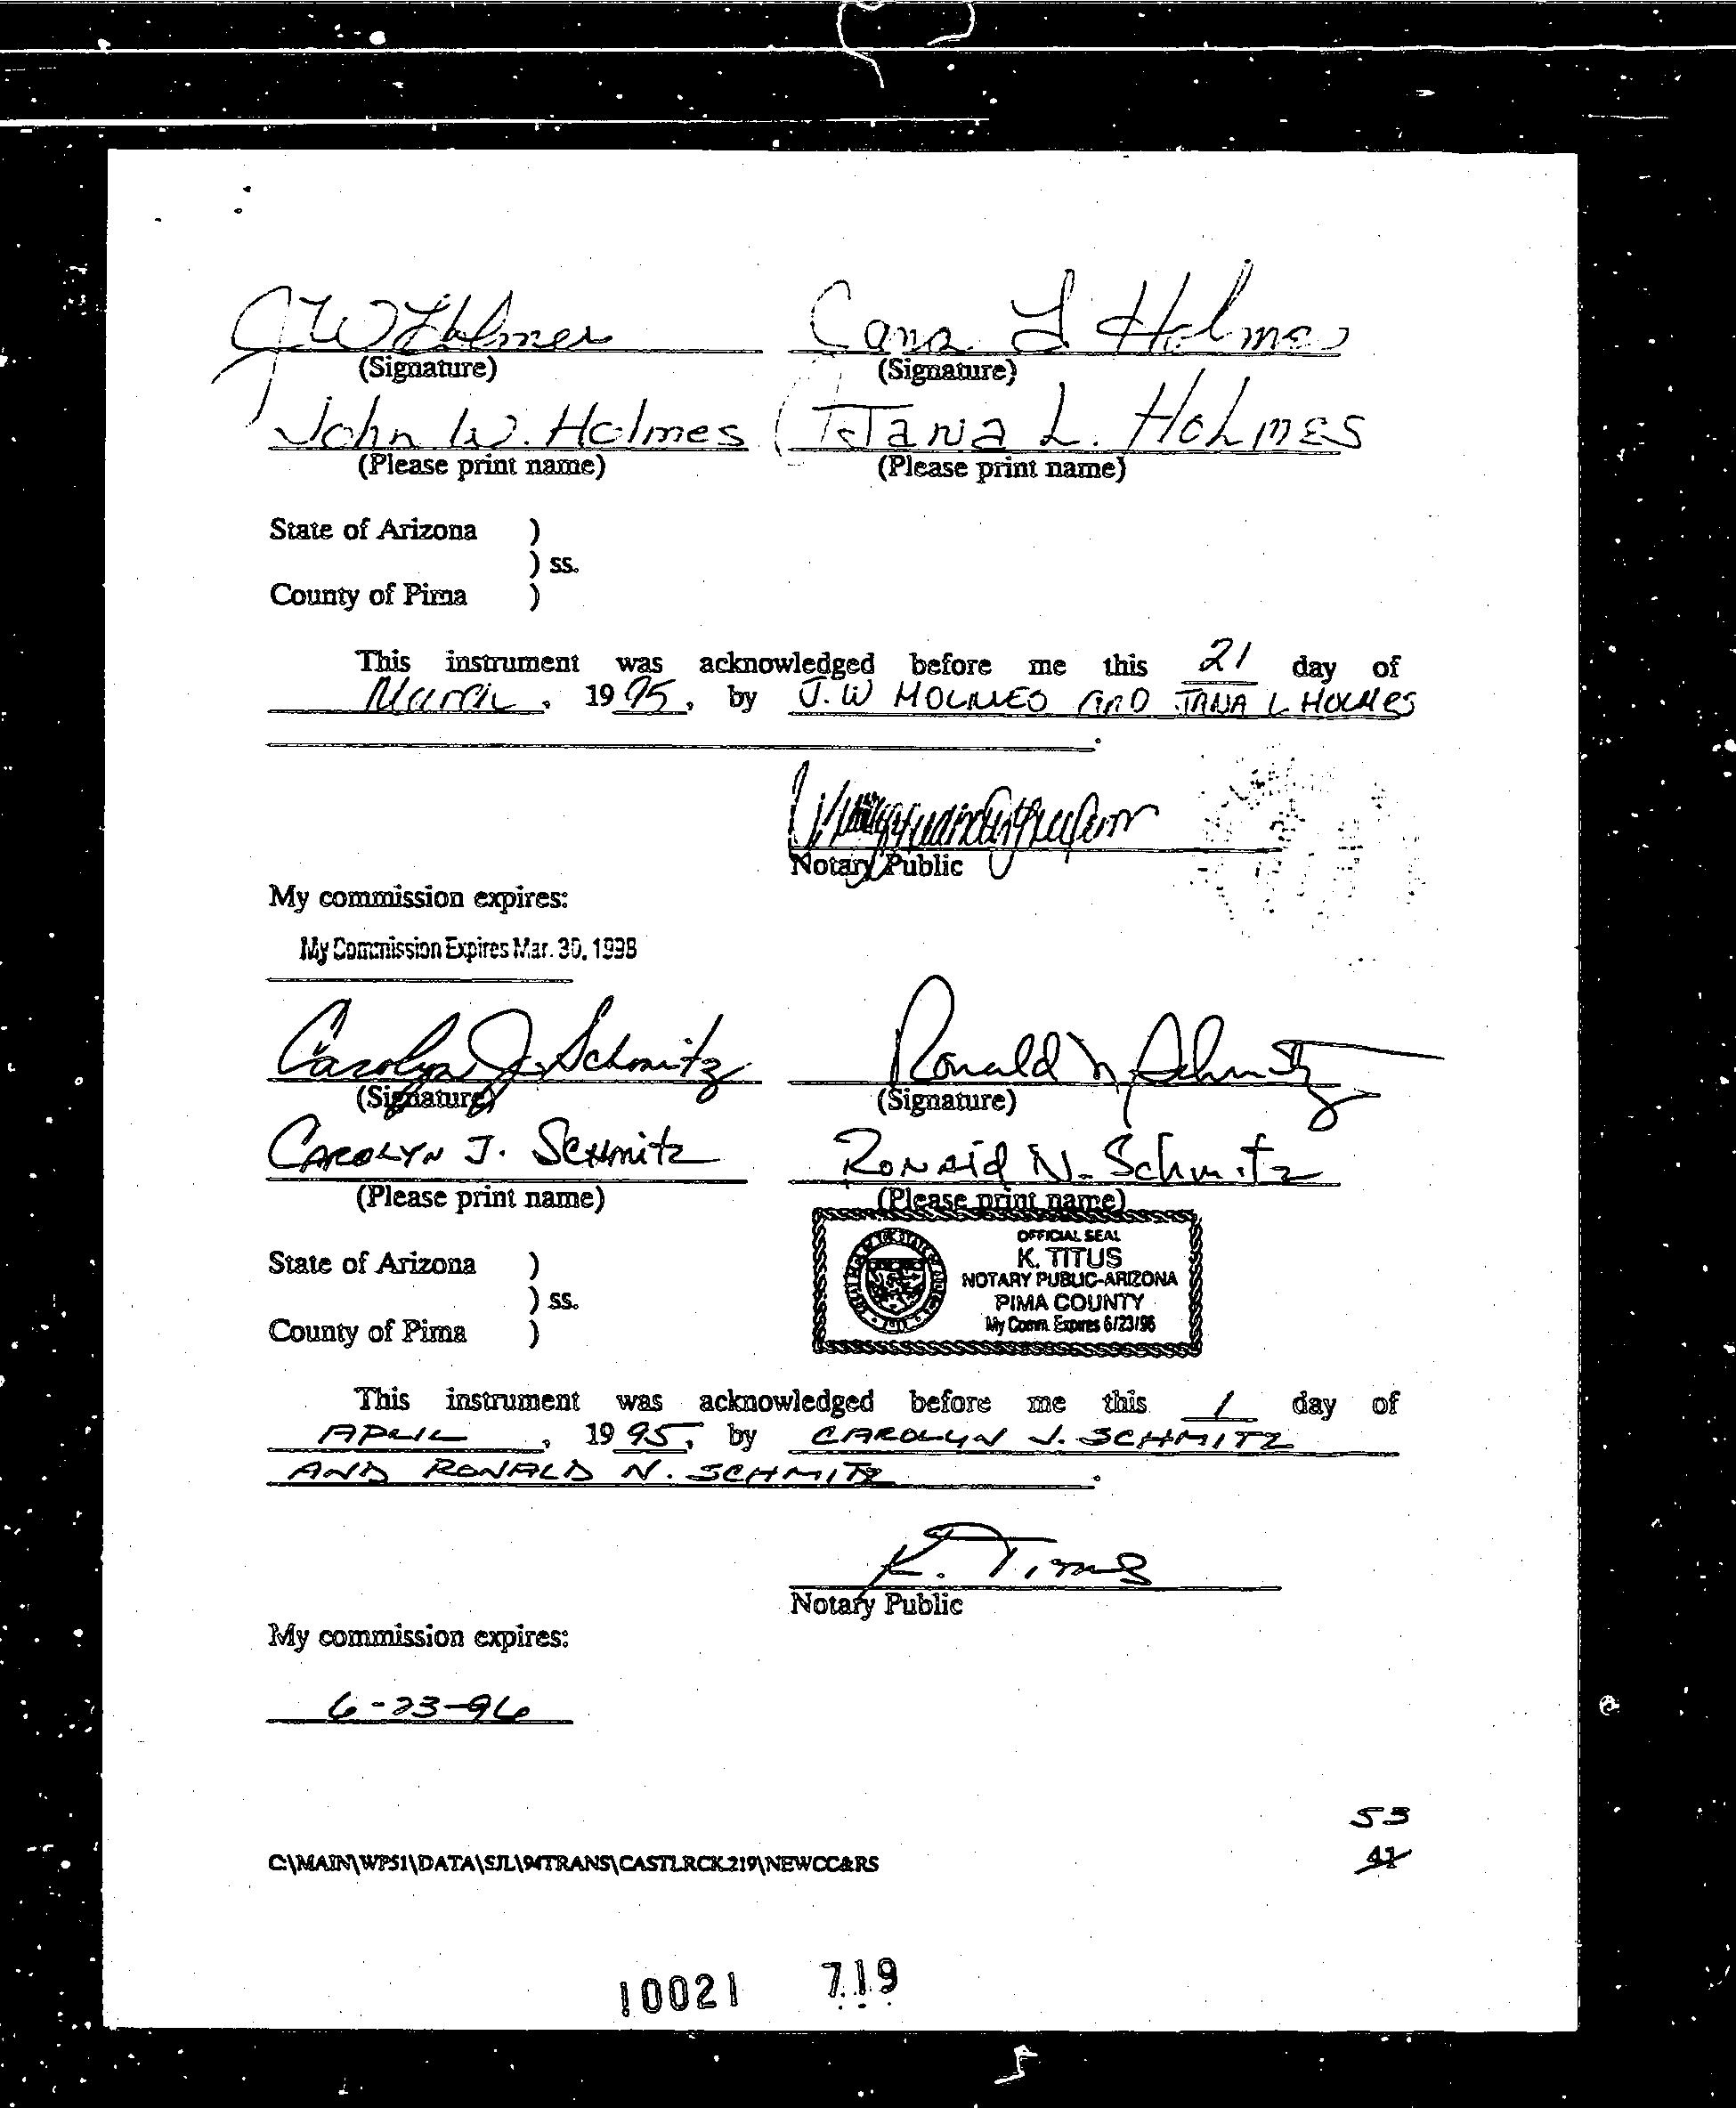 JW Holmes Jana L Holmes
(Signature) (Signature)
John W. Holmes Jana L. Holmes
(Please print name) (Please print name)
State of Arizona )
) ss.
County of Pima )
This instrument was acknowledged before me this 21 day of
March, 1995, by J.W HOLMES AND JANA L HOLMES
Notary Public
My commission expires:
My Commission Expires Mar. 30, 1998
Carolyn J. Schmitz Ronald N Schmitz
(Signature) (Signature)
CAROLYN J. SCHMITZ Ronald N. Schmitz
(Please print name) (Please print name)
OFFICIAL SEAL
K. TITUS
NOTARY PUBLIC-ARIZONA
PIMA COUNTY
My Comm. Expires 6/23/96
State of Arizona )
) ss.
County of Pima )
This instrument was acknowledged before me this 1 day of
APRIL, 1995, by CAROLYN J. SCHMITZ
AND RONALD N. SCHMITZ.
K. Titus
Notary Public
My commission expires:
6-23-96
53
41
C:\MAIN\WP51\DATA\SJL\94TRANS\CASTLRCK.219\NEWCC&RS
10021 719